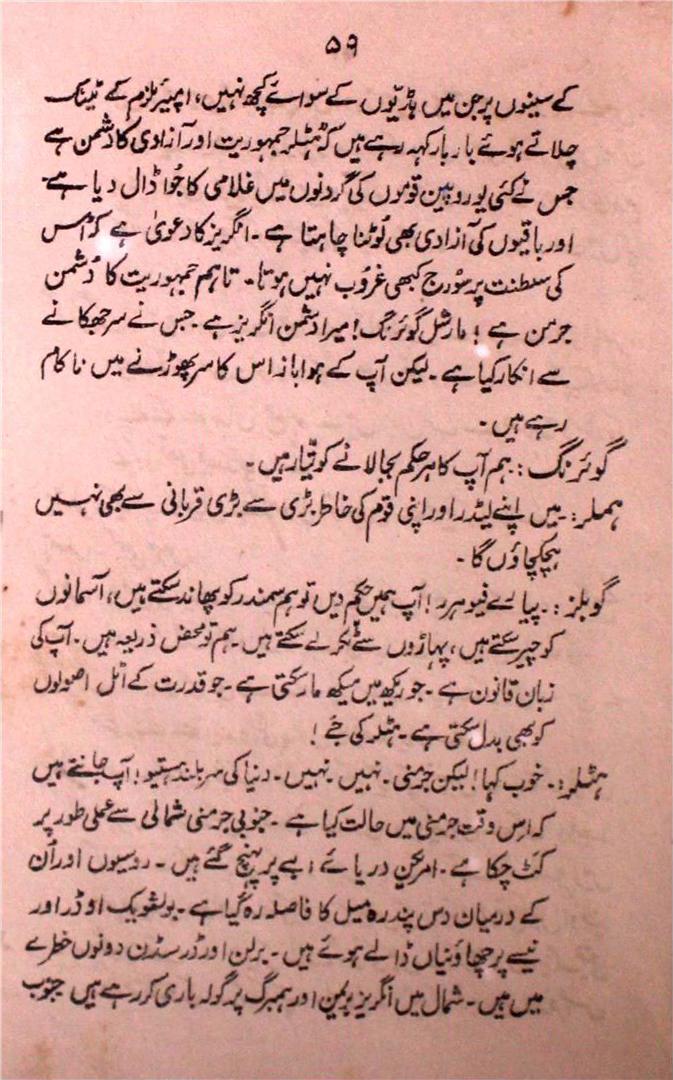 ۵۹
کے سینوں پر جن میں ہڈیوں کے سوائے کچھ نہیں، امپیریلزم کے ٹینک
چلاتے ہوئے بار بار کہہ رہے ہیں کہ ہٹلر جمہوریت اور آزادی کا دشمن ہے
جس نے کئی یوروپین قوموں کی گردنوں میں غلامی کا جُوا ڈال دیا ہے۔
اور باقیوں کی آزادی بھی لُوٹنا چاہتا ہے۔ انگریز کا دعویٰ ہے کہ اُس
کی سلطنت پر سُورج کبھی غرُوب نہیں ہوتا۔ تاہم جمہوریت کا دُشمن
جرمن ہے! مارشل گوئرنگ! میرا دشمن انگریز ہے۔ جس نے سر جھکانے
سے انکار کیا ہے۔ لیکن آپ کے ہوا باز اس کا سر پھوڑنے میں ناکام
رہے ہیں۔
گوئرنگ: ہم آپ کا ہر حکم بجا لانے کو تیّار ہیں۔
ہملر:۔ میں اپنے لیڈر اور اپنی قوم کی خاطر بڑی سے بڑی قربانی سے بھی نہیں
ہچکچاؤں گا۔
گوبلز:۔ پیارے فیوہرر! آپ ہمیں حکم دیں تو ہم سمندر کو پھاند سکتے ہیں، آسمانوں
کو چیر سکتے ہیں، پہاڑوں سے ٹکر لے سکتے ہیں۔ ہم تو محض ذریعہ ہیں۔ آپ کی
زبان قانون ہے۔ جو ریکھ میں میکھ مار سکتی ہے۔ جو قدرت کے اٹل اصولوں
کو بھی بدل سکتی ہے۔ ہٹلر کی جَے!
ہٹلر:۔ خوب کہا! لیکن جرمنی۔ نہیں۔ نہیں۔ دنیا کی سربلند ہستیو! آپ جانتے ہیں
کہ اِس وقت جرمنی میں حالت کیا ہے۔ جنوبی جرمنی شمالی سے عملی طور پر
کٹ چکا ہے۔ امریکن دریائے ایبے پر پہنچ گئے ہیں۔ روسیوں اور اُن
کے درمیان دس پندرہ میل کا فاصلہ رہ گیا ہے۔ بولشویک اوڈر اور
نیسے پر چھاؤنیاں ڈالے ہوئے ہیں۔ برلن اور ڈرسڈن دونوں خطرے
میں ہیں۔ شمال میں انگریز بریمن اور ہمبرگ پر گولہ باری کر رہے ہیں جنوب